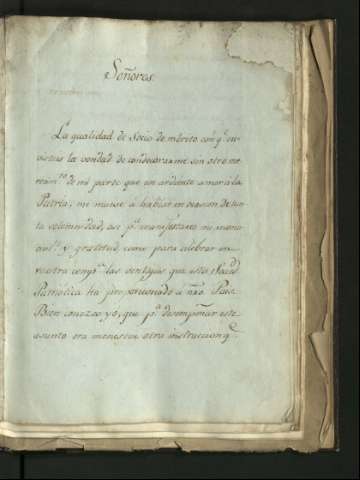 Señores
La qualidad de Socio de mérito con q.e tu-
visteis la bondad de condecorarme sin otro me-
recim.to de mi parte que un ardiente amor á la
Patria, me mueve á hablar en ocasion de tan-
ta solemnidad, asi p.a manifestaros mi
y gratitud, como para celebrar en
vuestra comp.a las ventajas que esta Socied.
Patriótica ha proporcionado a ntro. Pais.
Bien conozco yo, que p.a desempeñar este
asunto era menester otra instruccion q.e